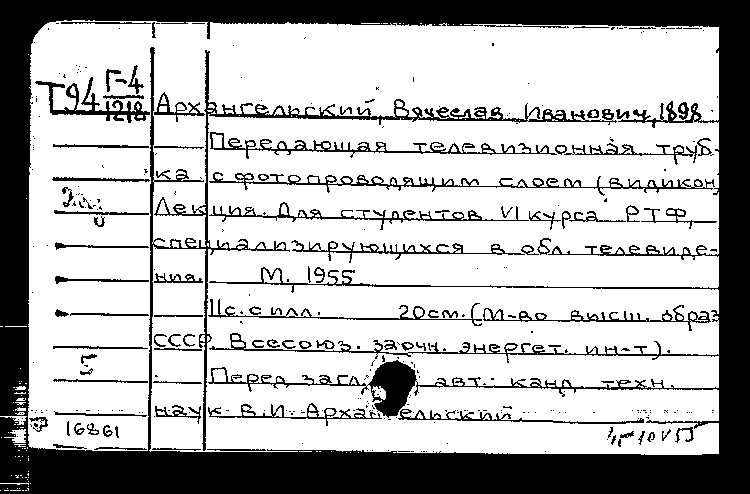 Т94 Г-4
1218
Архангельский, Вячеслав Иванович, 1898
Передающая телевизионная труб-
ка с фотопроводящим слоем (видикон)
Лекция. Для студентов VI курса РТФ,
специализирующихся в обл. телевиде-
ния. М., 1955
11с. с илл. 20см. (М-во высш. образ
СССР. Всесоюз. заочн. энергет. ин-т).
5
Перед загл. авт.: канд. техн.
наук В.И. Архангельский.
16861
10 V 55